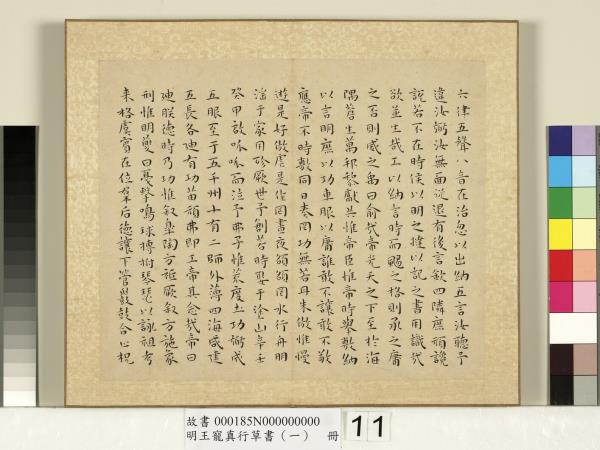 六律五聲八音在治忽以出納五言汝聽予
違汝弼汝無面從退有後言欽四隣庶頑讒
說若不在時侯以明之撻以記之書用識哉
欲並生哉工以納言時而颺之格則承之庸
之否則威之禹曰俞哉帝光天之下至於海
隅蒼生萬邦黎獻共惟帝臣惟帝時舉敷納
以言明庶以功車服以庸誰敢不讓敢不敬
應帝不時敷同日奏罔功無若丹朱傲惟慢
遊是好傲虐是作罔晝夜頟頟罔水行舟朋
淫于家用殄厥世予創若時娶于塗山辛壬
癸甲啟呱呱而泣予弗子惟荒度土功弼成
五服至于五千州十有二師外薄四海咸建
五長各迪有功苗頑弗即工帝其念哉帝曰
迪朕德時乃功惟敘皋陶方祗厥敘方施象
刑惟明夔曰戛擊鳴球搏拊琴瑟以詠祖考
来格虞賓在位羣后德讓下管鼗鼓合止柷
故書 000185N000000000
明王寵真行草書（一） 冊
11